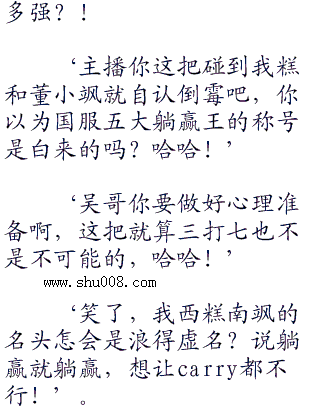 多强？！
‘主播你这把碰到我糕
和董小飒就自认倒霉吧，你
以为国服五大躺赢王的称号
是白来的吗？哈哈！’
‘吴哥你要做好心理准
备啊，这把就算三打七也不
是不可能的，哈哈！’
www.shu008.com
‘笑了，我西糕南飒的
名头怎会是浪得虚名？说躺
赢就躺赢，想让carry都不
行！’。